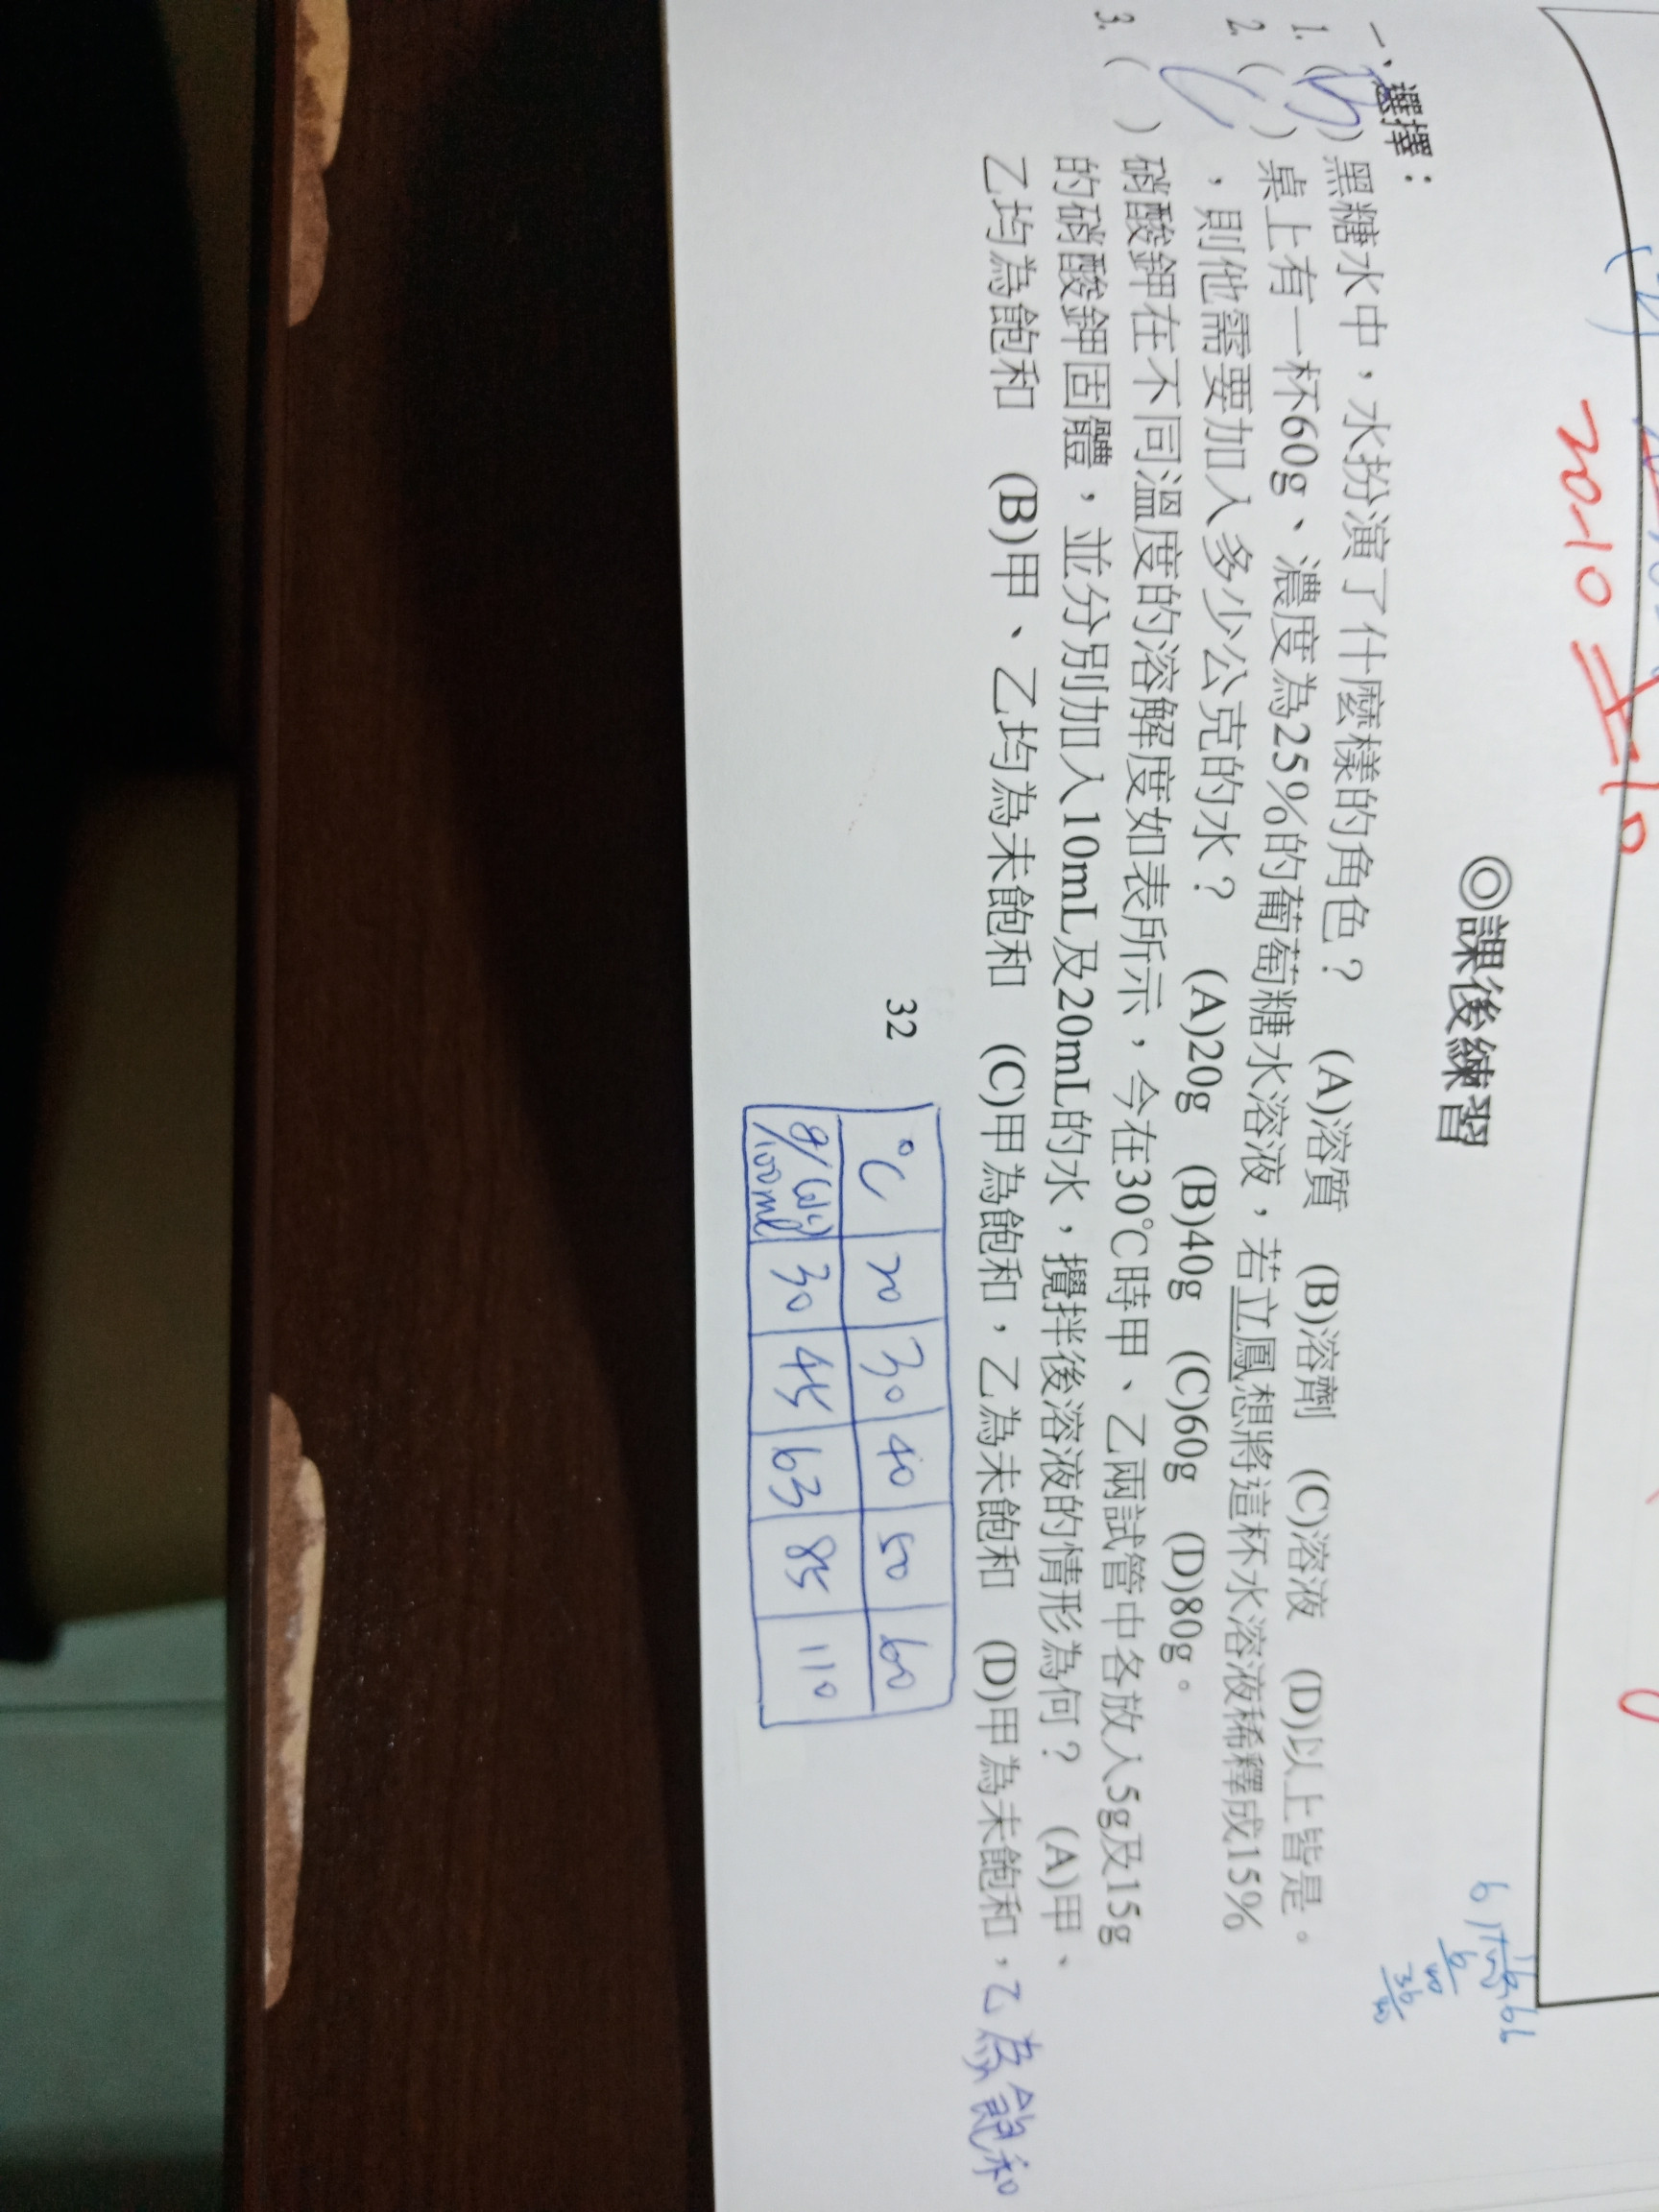 20-10=10
◎課後練習
一、選擇：
1. (B) 黑糖水中，水扮演了什麼樣的角色？ (A)溶質 (B)溶劑 (C)溶液 (D)以上皆是。
2. (C) 桌上有一杯60g、濃度為25%的葡萄糖水溶液，若立鳳想將這杯水溶液稀釋成15%
，則他需要加入多少公克的水？ (A)20g (B)40g (C)60g (D)80g。
3. ( ) 硝酸鉀在不同溫度的溶解度如表所示，今在30℃時甲、乙兩試管中各放入5g及15g
的硝酸鉀固體，並分別加入10mL及20mL的水，攪拌後溶液的情形為何？ (A)甲、
乙均為飽和 (B)甲、乙均為未飽和 (C)甲為飽和，乙為未飽和 (D)甲為未飽和，乙為飽和
32
℃ 20 30 40 50 60
30 45 63 85 110
/100ml